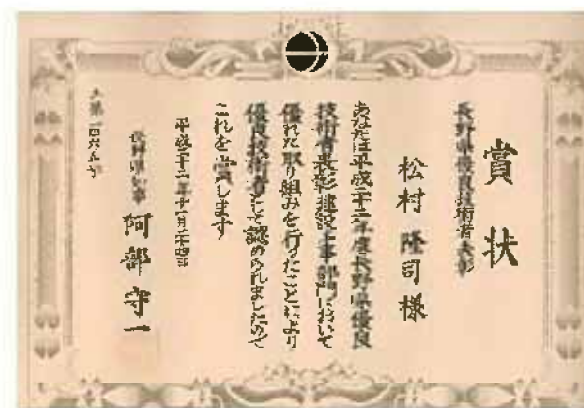 賞状
長野県優良技術者表彰
松村隆司様
あなたは平成二十二年度長野県優良
技術者表彰建設工事部門において
優れた取り組みを行ったことにより
優良技術者として認められましたので
これを賞します
平成二十二年十一月二十四日
長野県知事 阿部守一